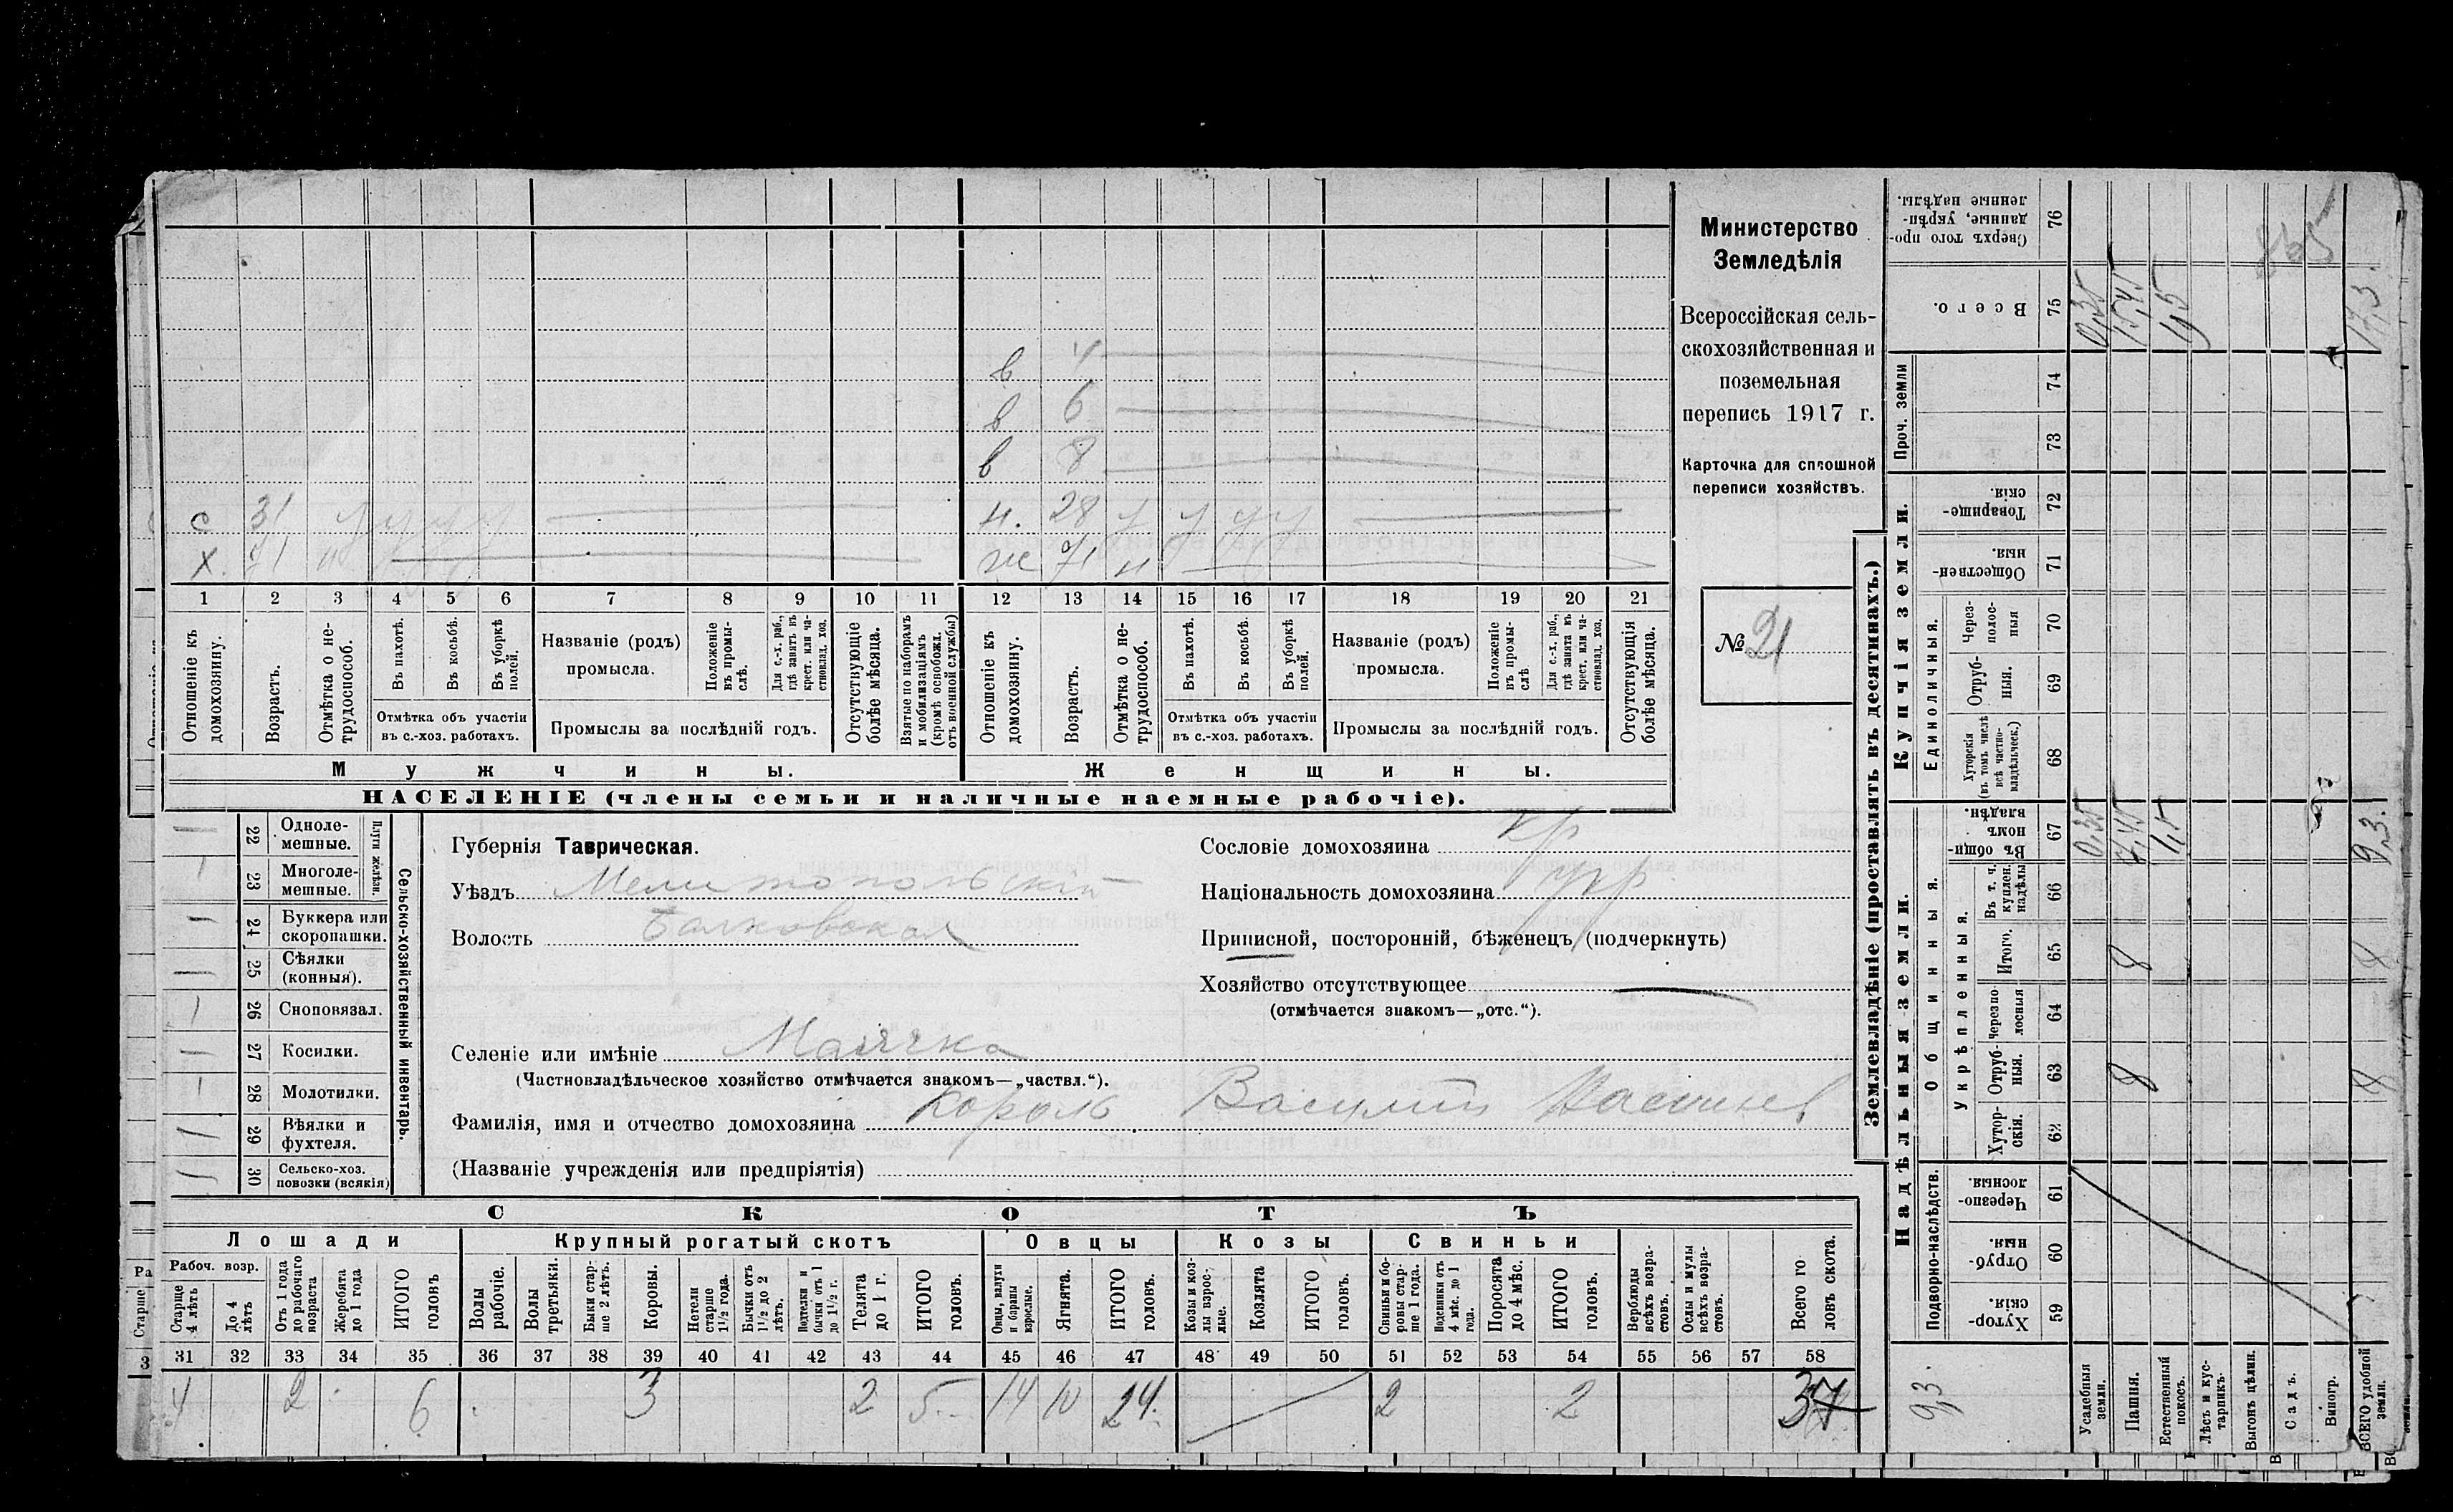 Министерство
Земледѣлія
Всероссійская сель-
скохозяйственная и
поземельная
перепись 1917 г.
Карточка для сплошной
переписи хозяйствъ.
№ 21
в 4
в 6
в 8
с 31
н. 28
х 71 н
ж 71 н
1 2 3 4 5 6 7 8 9 10 11 12 13 14 15 16 17 18 19 20 21
Отношеніе къ домохозяину.
Возрастъ.
Отмѣтка о не-трудоспособ.
Въ пахотѣ.
Въ косьбѣ.
Въ уборкѣ полей.
Отмѣтка объ участіи
въ с.-хоз. работахъ.
Названіе (родъ)
промысла.
Положеніе въ промы-слѣ.
Для с.-х. раб., гдѣ занятъ въ крест. или ча-ствовлад. хоз.
Промыслы за послѣдній годъ.
Отсутствующіе болѣе мѣсяца.
Взятые по наборамъ и мобилизаціямъ (кромѣ освобожд. отъ военной службы)
Отношеніе къ домохозяину.
Возрастъ.
Отмѣтка о не-трудоспособ.
Въ пахотѣ.
Въ косьбѣ.
Въ уборкѣ полей.
Отмѣтка объ участіи
въ с.-хоз. работахъ.
Названіе (родъ)
промысла.
Положеніе въ промы-слѣ
Для с.-х. раб., гдѣ занята въ крест. или ча-ствовлад. хоз.
Промыслы за послѣдній годъ.
Отсутствующія болѣе мѣсяца.
Мужчины.
Женщины.
НАСЕЛЕНІЕ (члены семьи и наличные наемные рабочіе).
22 Одноле-мешные.
23 Многоле-мешные.
Плуги желѣзн.
24 Буккера или скоропашки.
25 Сѣялки (конныя).
26 Сноповязал.
27 Косилки.
28 Молотилки.
29 Вѣялки и фухтеля.
30 Сельско-хоз. повозки (всякія)
Сельско-хозяйственный инвентарь.
Губернія Таврическая.
Уѣздъ Мелитопольскій
Волость Балковская
Селеніе или имѣніе Маячка
(Частновладѣльческое хозяйство отмѣчается знакомъ—„частвл.“).
Фамилія, имя и отчество домохозяина Король Василій
(Названіе учрежденія или предпріятія)
Сословіе домохозяина кр
Національность домохозяина укр
Приписной, посторонній, бѣженецъ (подчеркнуть)
Хозяйство отсутствующее
(отмѣчается знакомъ—„отс.“).
СКОТЪ
Лошади
Крупный рогатый скотъ
Овцы
Козы
Свиньи
Рабоч. возр.
Старше 4 лѣтъ
До 4 лѣтъ
Отъ 1 года до рабочаго возраста
Жеребята до 1 года
ИТОГО головъ
Волы рабочіе.
Волы третьяки.
Быки стар-ше 2 лѣтъ.
Коровы.
Нетели старше 1½ года.
Бычки отъ 1½ до 2 лѣтъ.
Подтелки и бычки отъ 1 до 1½ г.
Телята до 1 г.
ИТОГО головъ.
Овцы, валухи и бараны взрослые.
Ягнята.
ИТОГО головъ.
Козы и коз-лы взрос-лые.
Козлята
ИТОГО головъ.
Свиньи и бо-ровы стар-ше 1 года.
Подсвинки отъ 4 мѣс. до 1 года.
Поросята до 4 мѣс.
ИТОГО головъ.
Верблюды всѣхъ возра-стовъ.
Ослы и мулы всѣхъ возра-стовъ.
Всего го-ловъ скота.
31 32 33 34 35 36 37 38 39 40 41 42 43 44 45 46 47 48 49 50 51 52 53 54 55 56 57 58
4 2 6 3 2 5 14 10 24 2 2 37
Землевладѣніе (проставлять въ десятинахъ.)
Надѣльныя земли.
Купчія земли.
Проч. земли
Подворно-наслѣдств.
Общинныя.
Укрѣпленныя.
Единоличныя.
59 Хутор-скія.
60 Отруб-ныя.
61 Черезпо-лосныя.
62 Хутор-скія.
63 Отруб-ныя.
64 Черезпо-лосныя
65 Итого.
66 Въ т. ч. куплен. надѣлы
67 Въ общин-номъ владѣн.
68 Хуторскія (въ томъ числѣ всѣ частно-владѣльческ.)
69 Отруб-ныя.
70 Через-полос-ныя
71 Обществен-ныя.
72 Товарище-скія.
73
74
75 Всего.
76 Сверхъ того про-данные, укрѣп-ленные надѣлы.
Усадебныя земли.
Пашня.
Естественный покосъ.
Лѣсъ и кус-тарникъ.
Выгонъ цѣлин.
Садъ.
Виногр.
ВСЕГО удобной земли.
0,35 0,35
8 8 7,45 15,45
1,5 1,5
8 8 9,3 17,3
9,3